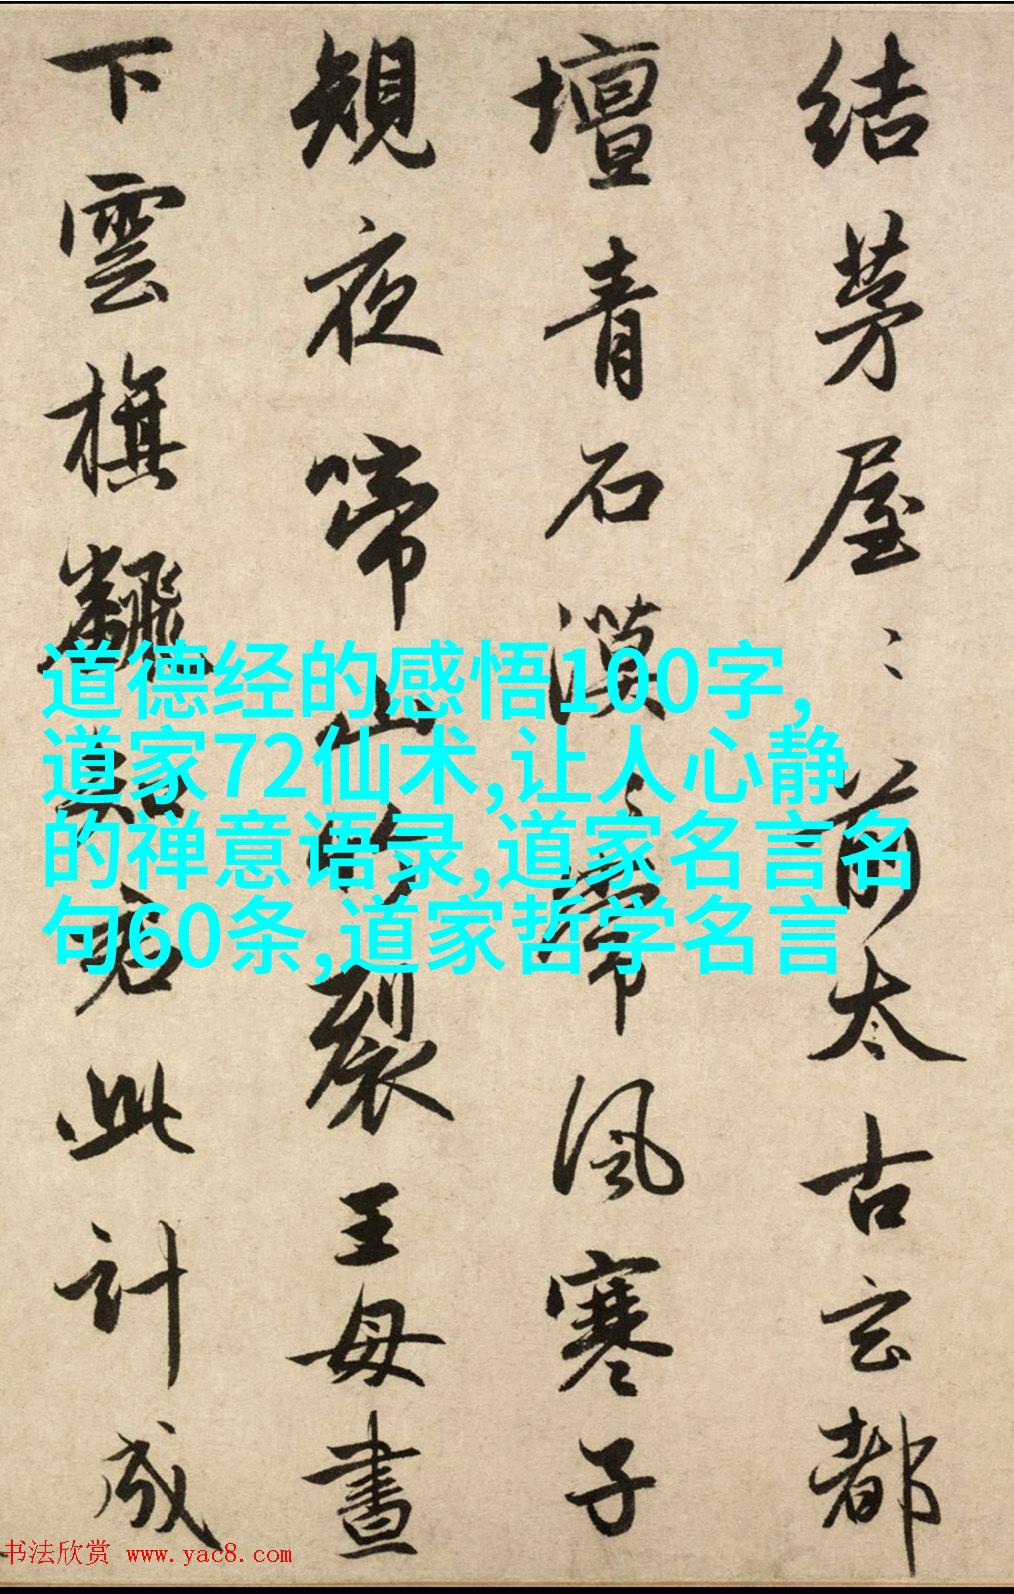 結茅屋〻前太古玄都
壇青石漠〻常風寒子
規夜啼山竹裂王母晝
下雲旗飜知君此計成
道德经的感悟100字,
道家72仙术,让人心静
的禅意语录,道家名言名
句60条,道家哲学名言
书法欣赏 www.yac8.com